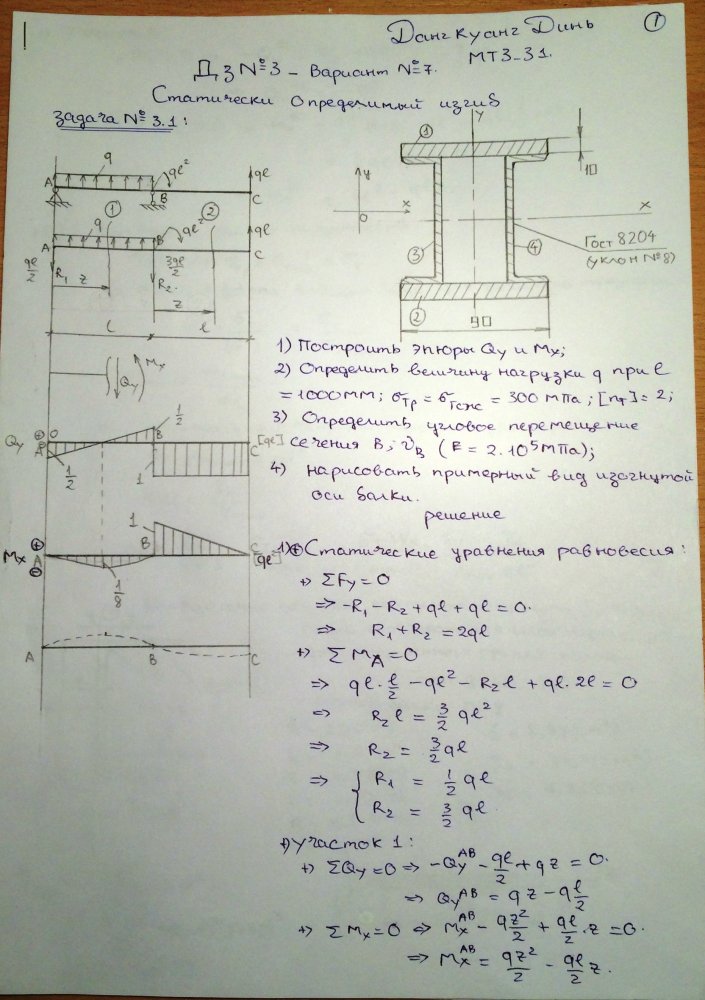 Данг Куанг Динь
1
МТ3-31.
ДЗ №3 - Вариант №7.
Статически определимый изгиб
Задача №3.1:
q
ql²
ql
A
B
C
1
2
q
ql²
ql
A
B
C
ql/2
R₁
z
3ql/2
R₂
z
l
l
Mx
Qy
Qy
⊕
0
A
1/2
1/2
B
1
C
[ql]
Mx
⊕
⊖
A
1/8
1
B
C
[ql²]
A
B
C
y
x
0
y
x
1
2
3
4
10
90
Гост 8204
(уклон №8)
1) Построить эпюры Qy и Mx;
2) Определить величину нагрузки q при l
= 1000 мм; σтр = σтсж = 300 МПа; [nт] = 2;
3) Определить угловое перемещение
сечения B, υB (E = 2.10⁵ МПа);
4) нарисовать примерный вид изогнутой
оси балки.
решение
1) Статические уравнения равновесия:
+) ΣFy = 0
⇒ -R₁ - R₂ + ql + ql = 0.
⇒ R₁ + R₂ = 2ql
+) ΣMA = 0
⇒ ql · l/2 - ql² - R₂l + ql.2l = 0
⇒ R₂l = 3/2 ql²
⇒ R₂ = 3/2 ql
⇒ { R₁ = 1/2 ql
R₂ = 3/2 ql
Участок 1:
+) ΣQy = 0 ⇒ -Qy^AB - ql/2 + qz = 0.
⇒ Qy^AB = qz - ql/2
+) ΣMx = 0 ⇒ Mx^AB - qz²/2 + ql/2 . z = 0.
⇒ Mx^AB = qz²/2 - ql/2 z.